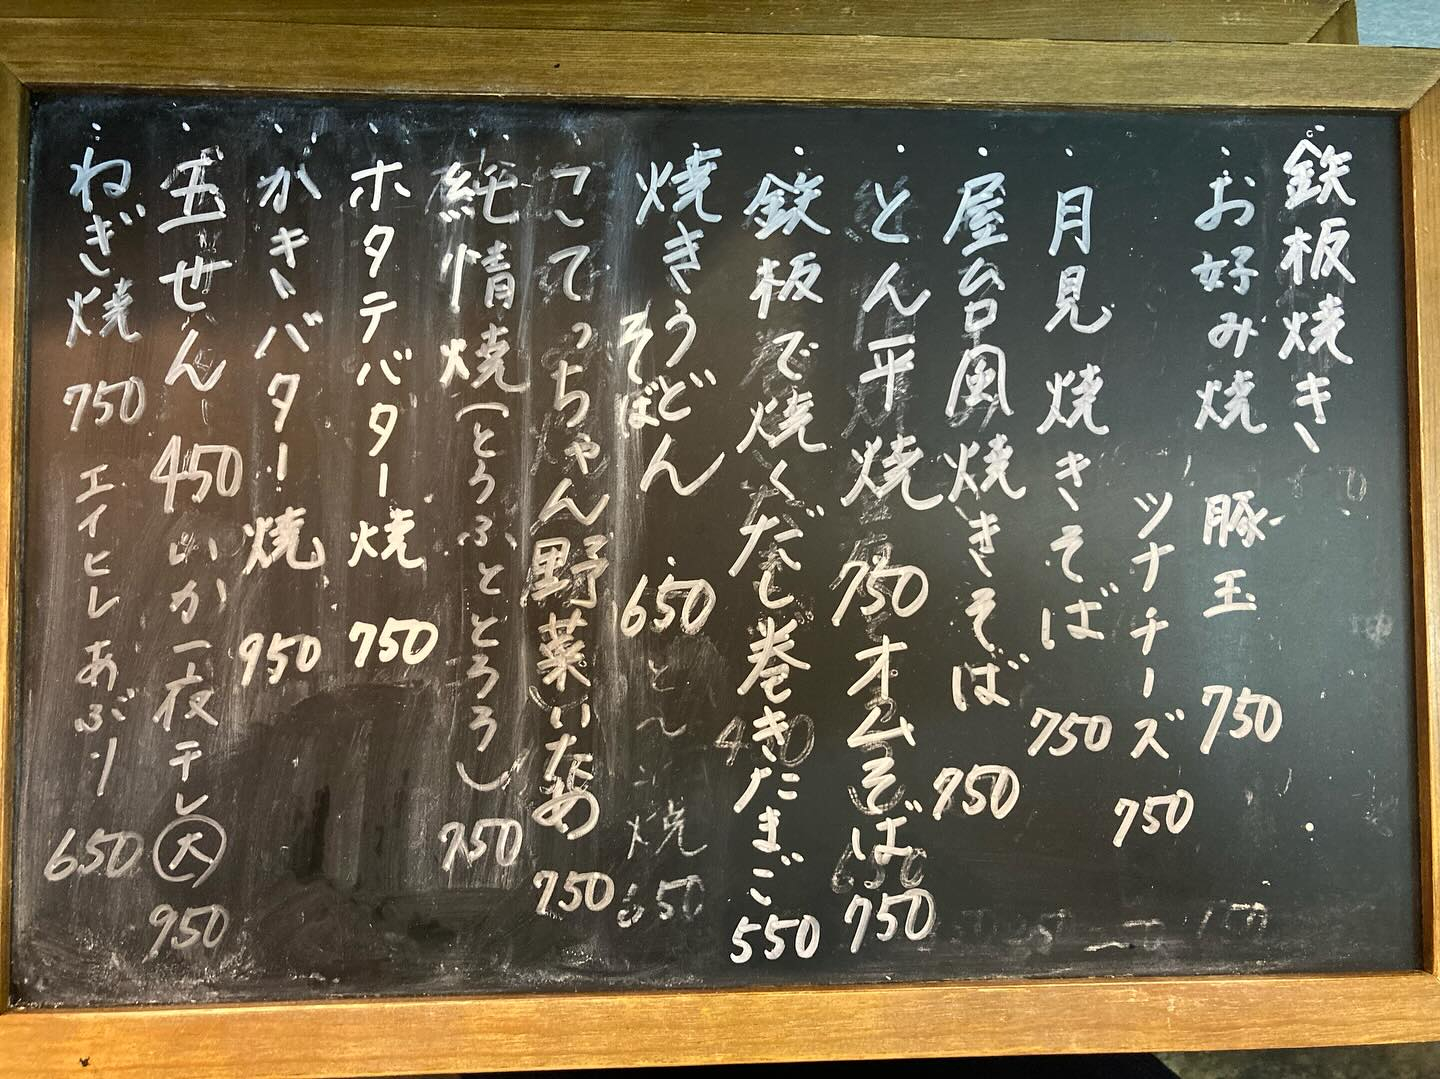 鉄板焼き
お好み焼 豚玉 750
ツナチーズ 750
月見焼きそば 750
屋台風焼きそば 750
とん平焼 750 オムそば 750
鉄板で焼くだし巻きたまご 550
焼きうどん 650
そば
こてっちゃん野菜いため 750
純情焼(とうふととろろ) 750
ホタテバター焼 750
かきバター焼 950
玉せん 450 いか一夜干し 大 950
ねぎ焼 750 エイヒレあぶり 650